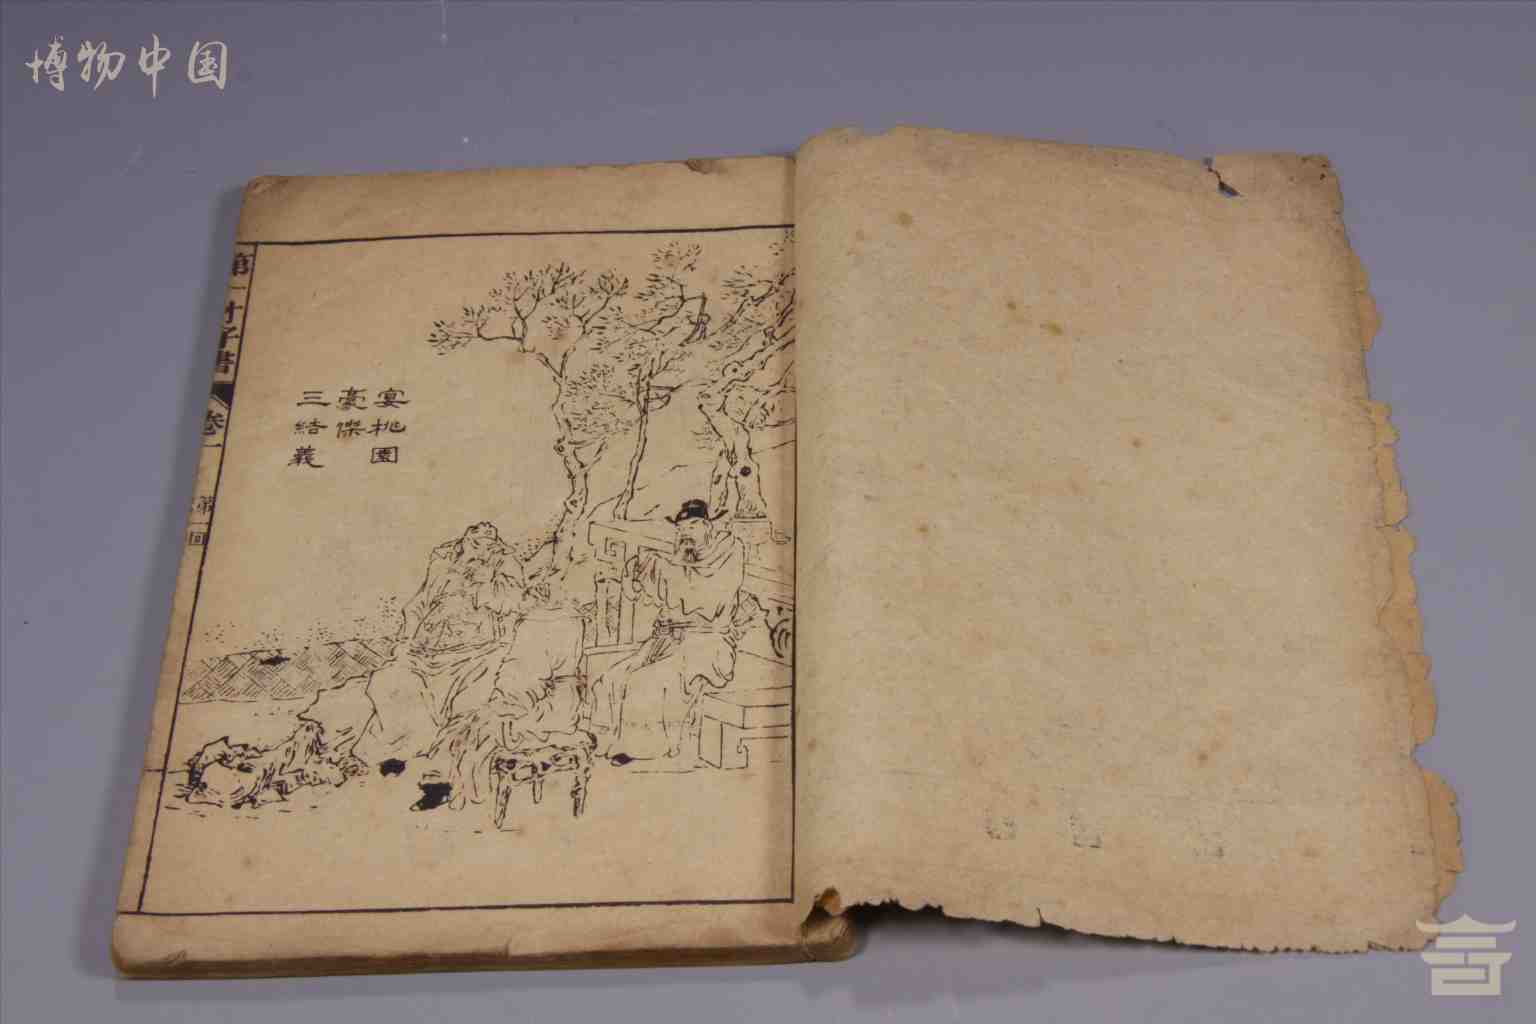 博物中国
宴桃園
豪傑
三結義
第一才子書
卷一
第一回